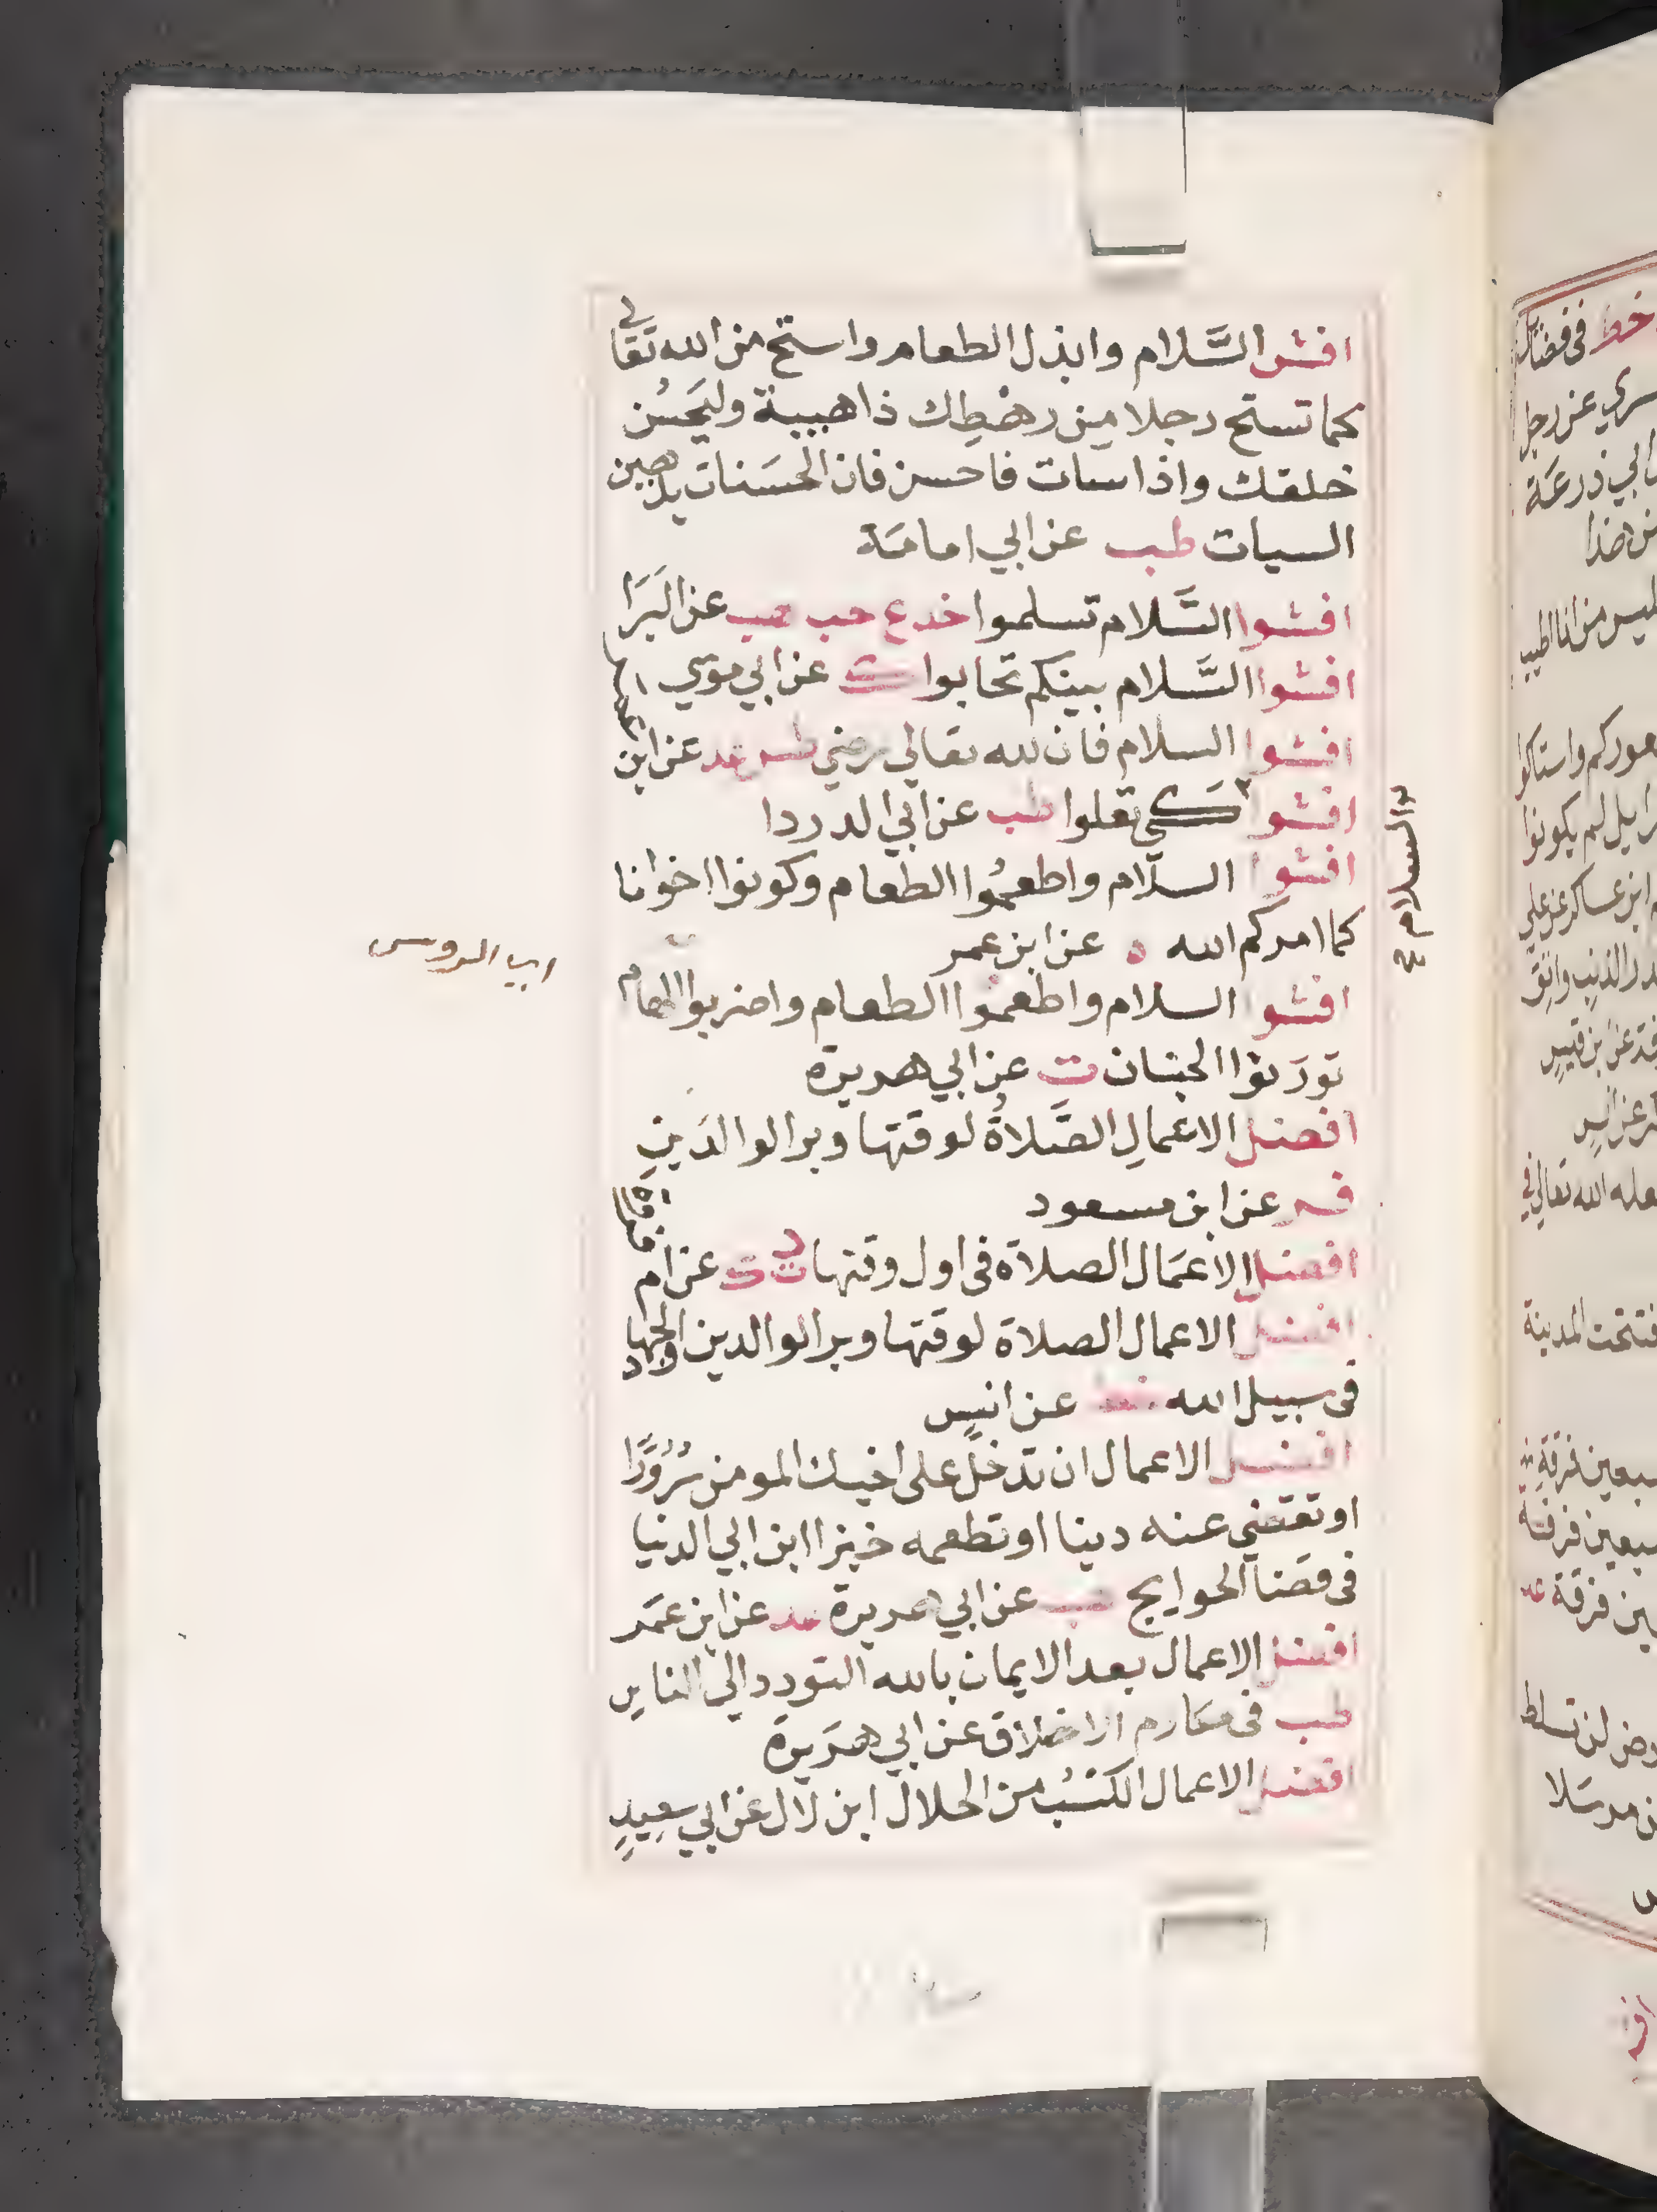 افش السَّلام وابذل الطعام واستح من الله تعالى
كما تستح رجلا مِن رهْطِك ذا هيبة وليَحسُن
خلقك واذا اسات فاحسن فان الحَسَنات يذهبن
السيات طب عن ابي امامَة
افشوا السَّلام تسلموا خد ع حب هب عن البَرَا
افشوا السَّلام بينكم تحابوا ك عن ابي موسي
افشوا السلام فان لله تعالي رضي طس عد عن ابن عمر
افشوا السلام كي تعلوا طب عن ابي الدردا
افشوا السلام واطعمُوا الطعام وكونوا اخوانا
كما امركم الله ه عن ابن عمر
افشوا السلام واطعموا الطعام واضربوا الهام
تورَثوا الجنان ت عن ابي هريرة
افضل الاعمالِ الصَّلاةُ لوقتها وبر الوالدَينِ
م عن ابن مسعود
افضل الاعمَال الصلاة في اول وقتها د ت ك عن ام فروة
افضل الاعمال الصلاة لوقتها وبر الوالدين والجهاد
في سبيل الله خط عن انسٍ
افضل الاعمال ان تدخل على اخيك المومن سُرُورًا
او تقضي عنه دينا او تطعمه خبزا ابن ابي الدنيا
في قضَا الحوايج هب عن ابي هريرة عد عن ابن عمَر
افضل الاعمال بعد الايمان بالله التودد الي الناسِ
طب في مكارم الاخلاق عن ابي هرَيرة
افضل الاعمال الكَسْبُ من الحلال ابن لال عن ابي سعِيدٍ
اي الروس
السلام